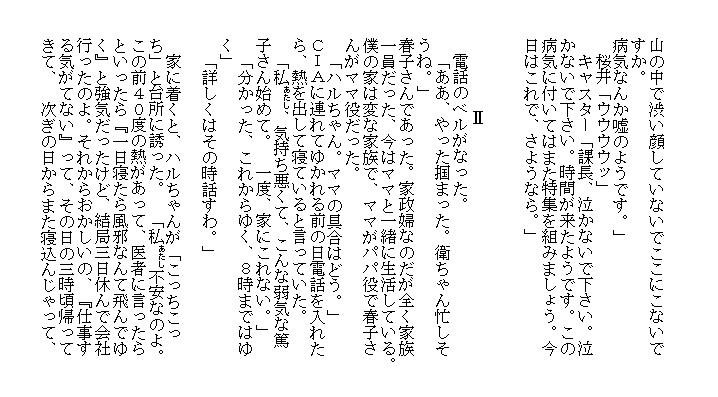 山の中で渋い顔していないでここにこないで
すか。
病気なんか嘘のようです。」
　桜井「ウウウウッ」
　キャスター「課長、泣かないで下さい。泣
かないで下さい。時間が来たようです。この
病気に付いてはまた特集を組みましょう。今
日はこれで、さようなら。」
Ⅱ
　電話のベルがなった。
　「ああ、やった掴まった。衛ちゃん忙しそ
うね。」
春子さんであった。家政婦なのだが全く家族
一員だった、今はママと一緒に生活している。
僕の家は変な家族で、ママがパパ役で春子さ
んがママ役だった。
　「ハルちゃん。ママの具合はどう。」
ＣＩＡに連れてゆかれる前の日電話を入れた
ら、熱を出して寝ていると言っていた。
　「私あたし、気持ち悪くて、こんな弱気な篤
子さん始めて。　一度、家にこれない。」
　「分かった、これからゆく、８時まではゆ
く」
　「詳しくはその時話すわ。」
　家に着くと、ハルちゃんが「こっちこっ
ち」と台所に誘った。　「私あたし不安なのよ。
この前４０度の熱があって、医者に言ったら
といったら『一日寝たら風邪なんて飛んでゆ
く』と強気だったけど、結局三日休んで会社
行ったのよ。それからおかしいの、『仕事す
る気がてない』って、その日の三時頃帰って
きて、　次ぎの日からまた寝込んじゃって、